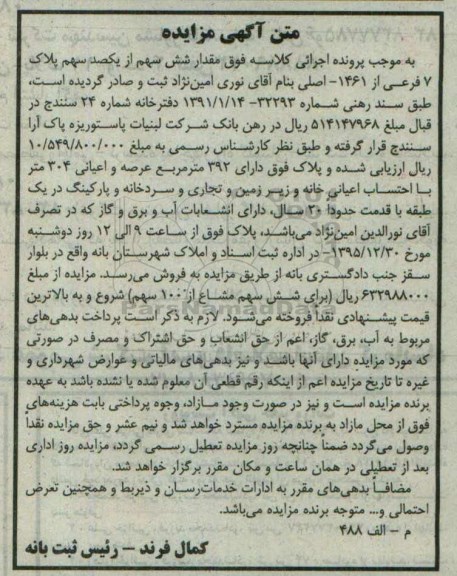 متن آگهی مزایده
به موجب پرونده اجرائی کلاسه فوق مقدار شش سهم از یکصد سهم پلاک
۷ فرعی از ۱۴۶۱- اصلی بنام آقای نوری امین‌نژاد ثبت و صادر گردیده است،
طبق سند رهنی شماره ۳۲۲۹۳- ۱۳۹۱/۱/۱۴ دفترخانه شماره ۲۴ سنندج در
قبال مبلغ ۵۱۴۱۴۷۹۶۸ ریال در رهن بانک شرکت لبنیات پاستوریزه پاک آرا
سنندج قرار گرفته و طبق نظر کارشناس رسمی به مبلغ ۱۰/۵۴۹/۸۰۰/۰۰۰
ریال ارزیابی شده و پلاک فوق دارای ۳۹۲ مترمربع عرصه و اعیانی ۳۰۴ متر
با احتساب اعیانی خانه و زیر زمین و تجاری و سردخانه و پارکینگ در یک
طبقه با قدمت حدوداً ۲۰ سال، دارای انشعابات آب و برق و گاز که در تصرف
آقای نورالدین امین‌نژاد می‌باشد، پلاک فوق از ساعت ۹ الی ۱۲ روز دوشنبه
مورخ ۱۳۹۵/۱۲/۳۰- در اداره ثبت اسناد و املاک شهرستان بانه واقع در بلوار
سقز جنب دادگستری بانه از طریق مزایده به فروش می‌رسد. مزایده از مبلغ
۶۳۲۹۸۸۰۰۰ ریال (برای شش سهم مشاع از ۱۰۰ سهم) شروع و به بالاترین
قیمت پیشنهادی نقداً فروخته می‌شود. لازم به ذکر است پرداخت بدهی‌های
مربوط به آب، برق، گاز، اعم از حق انشعاب و حق اشتراک و مصرف در صورتی
که مورد مزایده دارای آنها باشد و نیز بدهی‌های مالیاتی و عوارض شهرداری و
غیره تا تاریخ مزایده اعم از اینکه رقم قطعی آن معلوم شده یا نشده باشد به عهده
برنده مزایده است و نیز در صورت وجود مازاد، وجوه پرداختی بابت هزینه‌های
فوق از محل مازاد به برنده مزایده مسترد خواهد شد و نیم عشر و حق مزایده نقداً
وصول می‌گردد ضمناً چنانچه روز مزایده تعطیل رسمی گردد، مزایده روز اداری
بعد از تعطیلی در همان ساعت و مکان مقرر برگزار خواهد شد.
مضافاً بدهی‌های مقرر به ادارات خدمات‌رسان و ذیربط و همچنین تعرض
احتمالی و... متوجه برنده مزایده می‌باشد.
م – الف ۴۸۸
کمال فرند – رئیس ثبت بانه